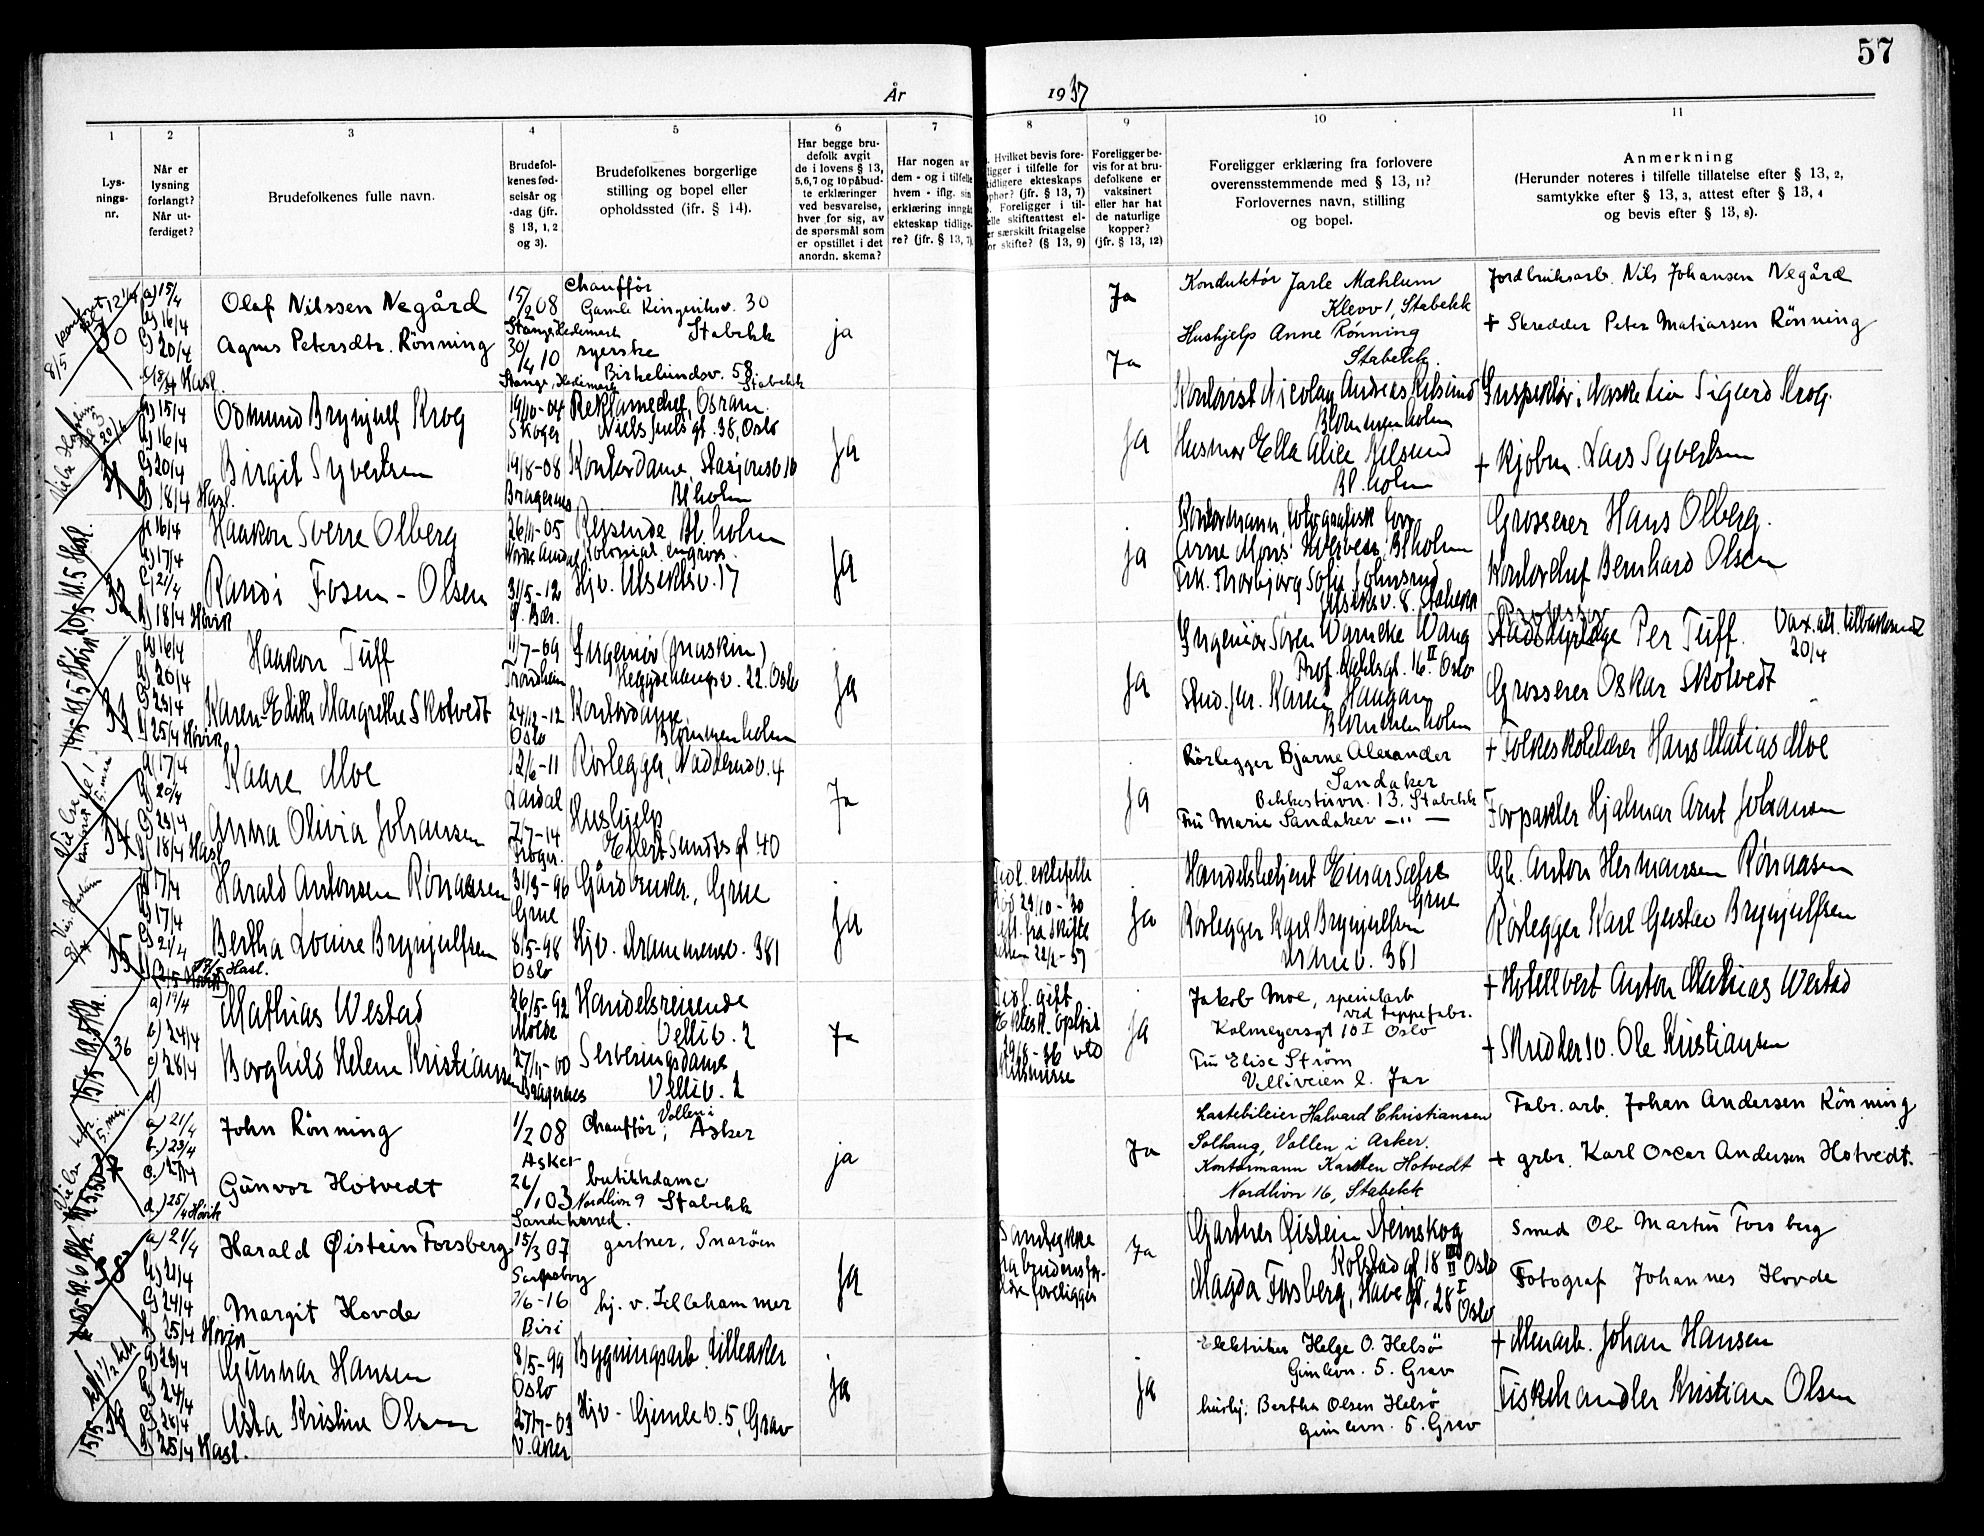 57
År
1937
1
2
3
4
5
6
7
8
9
10
11
Lys-
nings-
nr.
Når er
lysning
forlangt?
Når ut-
ferdiget?
Brudefolkenes fulle navn.
Brudefol-
kenes fød-
selsår og
-dag (jfr.
§ 13, 1, 2
og 3).
Brudefolkenes borgerlige
stilling og bopel eller
opholdssted (ifr. § 14).
Har begge bru-
defolk avgit
de i lovens § 13,
5,6,7 og 10 påbud-
te erklæringer
ved besvarelse,
hver for sig, av
de spørsmål som
er opstillet i det
anordn. skema?
Har nogen av
dem - og i tilfelle
hvem - iflg. sin
erklæring inngått
ekteskap tidlige-
re? (jfr. § 13, 7).
Hvilket bevis fore-
ligger i tilfelle for
tidligere ekteskaps
ophør? (jfr. § 13, 7)
Foreligger i til-
elle skifteattest el-
er særskilt fritagelse
or skifte? (§ 13, 9)
Foreligger be-
vis for at bru-
defolkene er
vaksinert
eller har hat
de naturlige
kopper?
(jfr. § 13, 12)
Foreligger erklæring fra forlovere
overensstemmende med § 13, 11?
Forlovernes navn, stilling
og bopel.
Anmerkning
(Herunder noteres i tilfelle tillatelse efter § 13, 2,
samtykke efter § 13, 3, attest efter § 13, 4
og bevis efter § 13, 8).
30
a) 15/4
b) 16/4
c) 20/4
Hasl.
Olaf Nilssen Negård
Agnes Petersdtr. Rönning
15/2 08
Stange Hedemark
30/4 10
Stange, Hedemark
Chaufför
Gamle Ringeriksv. 30
Stabekk
syerske
Birkelundsv. 58
Stabekk
ja
Ja
Ja
Konduktör Jarle Mæhlum
Klevv 1, Stabekk
Hushjelp Anne Rönning
Stabekk.
Jordbruksarb. Nils Johansen Negård
+ Skredder Peter Matiassen Rönning
31
a) 15/4
b) 16/4
c) 20/4
d) 18/4 Hasl.
Odmund Brynjulf Krog
Birgit Syvertsen
19/10-04
Skoger
19/8-08
Bragernes
Reklamechef, Osram.
Niels Juels gt. 38, Oslo
Kontordame, Stasjonsv 10
Bl. holm
Ja
Ja
Kontorist Nicolay Andreas
Blommenholm
Husmor Ella Alice
Bl. holm
Inspektør i Norske Liv Sigurd Krog.
+ Kjøbm. Lars Syvertsen
32
a) 16/4
b) 17/4
c) 21/4
d) 18/4 Høvik
Haakon Sverre Olberg
Randi Fosen-Olsen
26/11-05
31/5-12
Ø. Bær.
Reisende Bl. holm
Kolonial engros.
Hjv. Alsiktsv. 17
Ja
Ja
Kontormann,
Arne Bl holm
Frk. Thorbjørg Sofie Johnsrud
8. Stabekk
Grosserer Hans Olberg.
Kontorchef Bernhard Olsen
33
a) 16/4
b) 20/4
c) 23/4
d) 25/4 Høvik
Haakon Tuff
Karen-Edith Margrethe Skotvedt
11/7-09
Trondheim
24/12-12
Oslo
Ingeniør (maskin)
Heggehaugsv. 22. Oslo
Kontordame
Blommenholm
Ja
Ja
Ingeniør Søren Warncke Wang
Prof. Dahlsgt. 16 II Oslo
Stud. jur. Karen Haugan
Blommenholm
Professor
Per Tuff.
Vax. att. tilbakesendt
20/4
Grosserer Oskar Skotvedt
34
a) 17/4
b) 20/4
c) 23/4
d) 18/4 Hasl
Kaare Moe
Anna Olivia Johansen
12/6-11
Lardal
7/7-14
Rørlegger, Nadderudv. 4
Hushjelp
Eilert Sundts gt 40
Ja
Ja
Rörlegger Bjarne Alexander
Sandaker
Bekkestuvn. 13. Stabekk
Fru Marie Sandaker —"—
+ Folkeskolelærer Hans Matias Moe
Forpakter Hjalmar Arnt Johansen
35
a) 17/4
b) 17/4
c) 21/4
Hasl.
Harald Antonsen Rønaasen
Bertha Louise Brynjulfsen
31/3-96
Grue
8/5-98
Oslo
Gårdbruker, Grue
Hjv. Drammensv. 381
Ja
Tidl. ektefelle
død 29/10-'30
att. fra skifte
retten 22/2-37
Ja
Handelsbetjent Einar Sæfre
Grue
Rørlegger Karl Brynjulfsen
Dr.m.v. 381
Gb. Anton Hermansen Rønaasen
Rørlegger Karl Gustav Brynjulfsen
36
a) 19/4
b) 24/4
c) 28/4
d)
Mathias Westad
Borghild Helene Kristiansen
26/5-92
Molde
27/11-00
Bragernes
Handelsreisende
Velliv. 2
Serveringsdame
Velliv. 2
Ja
Tidl. gift
Ektesk. opløst
29/8-36 ved
Ja
Jakob Moe, spesialarb
ved teppefabr.
Kolmeyersgt 10 I Oslo
Fru Elise Ström
Velliveien 2. Jar
+ Hotellvert Anton Mathias Westad
+ Skredders v. Ole Kristiansen
37
a.) 21/4
b.) 23/4
c.) 27/4
d.) 25/4 Høvik
John Rönning
Gunvor Hotvedt
1/2 08
Asker
26/1 03
Sandeherred.
Chaufför, Vollen i
Asker
butikkdame
Nordlivn 9 Stabekk
ja
Ja
Lastebileier Halvard Christiansen
Solhaug, Vollen i Asker.
Kontormann Karsten Hotvedt
Nordlivn 16, Stabekk
Fabr. arb. Johan Andersen Rönning
+ grbr. Karl Oscar Andersen Hotvedt.
38
a.) 21/4
b) 21/4
c) 24/4
d) 25/4 Høvik
Harald Øistein Forsberg
Margit Hovde
15/3 07
Sarpsborg
7/6-16
Biri
gartner, Snarøen
hj. v. Lillehammer
Ja
Samtykke
fra brudens for-
eldre foreligger
Ja
Gartner Øistein Steinskog
Kolstad gt 18 III Oslo
Magda Forsberg, Have gt. 28 I
Oslo
Smed Ole Martin Forsberg
Fotograf Johannes Hovde
39
a) 23/4
b) 24/4
c) 28/4
d) 25/4 Hasl.
Gunnar Hansen
Asta Kristine Olsen
8/5-99
Oslo
27/7-03
V. Aker
Bygningsarb. Lilleaker
Hjv- Gimlev. 5, Grav
Ja
Ja
Elektriker Helge O. Helsö
Gimlevn. 5. Grav
husj. Bertha Olsen Helsö
Gimlevn. 5. Grav
+ Murarb. Johan Hansen
Fiskehandler Kristian Olsen